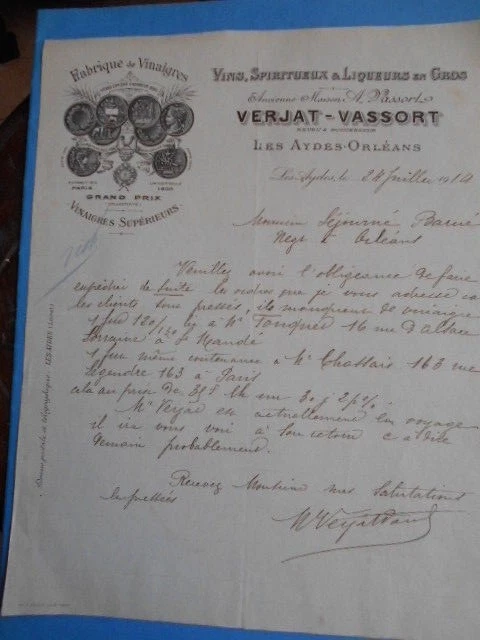 Fabrique de Vinaigres
PARIS 1900
GRAND PRIX
VINAIGRES SUPÉRIEURS
VINS, SPIRITUEUX & LIQUEURS EN GROS
Ancienne Maison A. Vassort
VERJAT-VASSORT
NEVEU & SUCCESSEUR
LES AYDES-ORLÉANS
Les Aydes, le 24 Juillet 1914
Monsieur Séjourné
Négt à Orléans
Veuillez avoir l'obligeance de faire
expédier de suite les ordres que je vous adresse ca
les clients sont pressés, ils manquent de vinaigre
1 fut 120/130 à Mr 16 rue d'alsace
Lorraine à St Mandé
1 fut même contenance à Mr Chassais 163 rue
Legendre 163 à Paris
cela au prix de 35f 30j 2%
Mr Verjat est actuellement en voyage
il ira vous voir à son retour c à dire
demain probablement.
Recevez Monsieur mes salutations
empressées
Adresse postale et télégraphique : LES AYDES (Loiret)